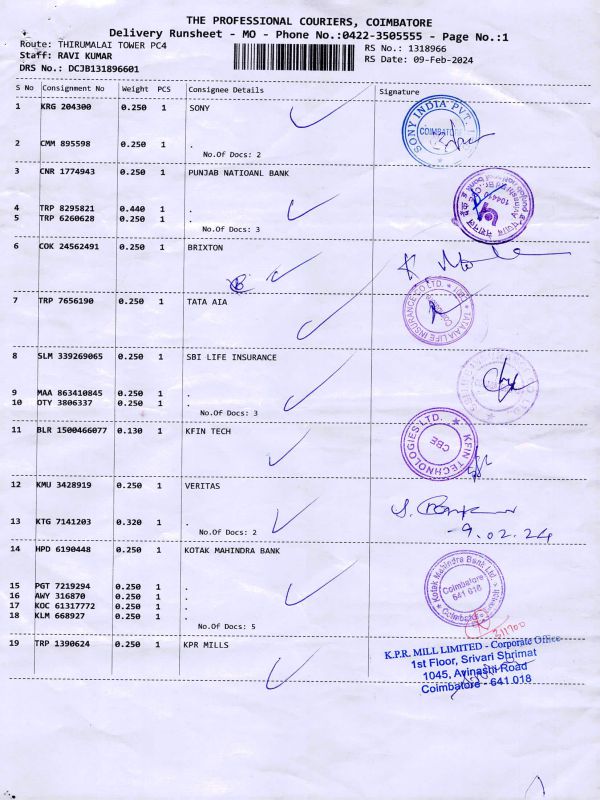 THE PROFESSIONAL COURIERS, COIMBATORE
Delivery Runsheet - MO - Phone No.:0422-3505555 - Page No.:1
Route: THIRUMALAI TOWER PC4
RS No.: 1318966
Staff: RAVI KUMAR
RS Date: 09-Feb-2024
DRS No.: DCJB131896601
S No Consignment No Weight PCS Consignee Details Signature
1 KRG 204300 0.250 1 SONY
SONY INDIA PVT.
COIMBATORE
2 CMM 895598 0.250 1 .
No.Of Docs: 2
3 CNR 1774943 0.250 1 PUNJAB NATIOANL BANK
4 TRP 8295821 0.440 1 .
5 TRP 6260628 0.250 1 .
No.Of Docs: 3
6 COK 24562491 0.250 1 BRIXTON
7 TRP 7656190 0.250 1 TATA AIA
TATA AIA LIFE INSURANCE CO LTD.
8 SLM 339269065 0.250 1 SBI LIFE INSURANCE
9 MAA 863410845 0.250 1 .
10 OTY 3806337 0.250 1 .
No.Of Docs: 3
11 BLR 1500466077 0.130 1 KFIN TECH
KFIN TECHNOLOGIES LTD.
CBE
12 KMU 3428919 0.250 1 VERITAS
13 KTG 7141203 0.320 1 .
No.Of Docs: 2
9.02.24
14 HPD 6190448 0.250 1 KOTAK MAHINDRA BANK
Kotak Mahindra Bank Ltd.
Coimbatore
641 018
Coimbatore
15 PGT 7219294 0.250 1 .
16 AWY 316870 0.250 1 .
17 KOC 61317772 0.250 1 .
18 KLM 668927 0.250 1 .
No.Of Docs: 5
19 TRP 1390624 0.250 1 KPR MILLS
K.P.R. MILL LIMITED - Corporate Office
1st Floor, Srivari Shrimat
1045, Avinashi Road
Coimbatore - 641 018